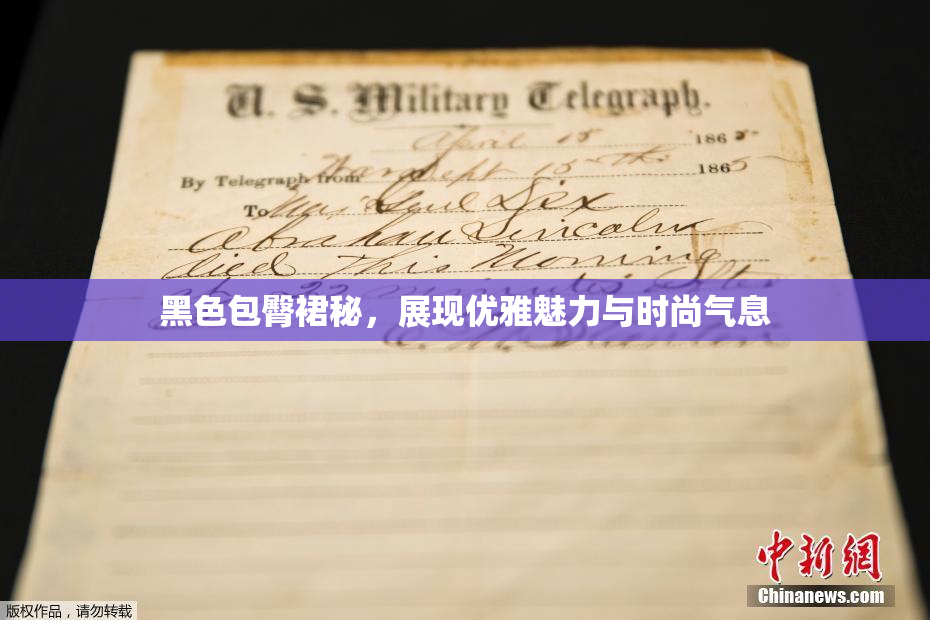 U. S. Military Telegraph.
April 15 1865
By Telegraph from War Dept 15th 1865
To Maj Genl Dix
Abraham Lincoln
died This Morning
22 minutes after
黑色包臀裙秘，展现优雅魅力与时尚气息
E. M. Stanton
中新网
Chinanews.com
版权作品，请勿转载